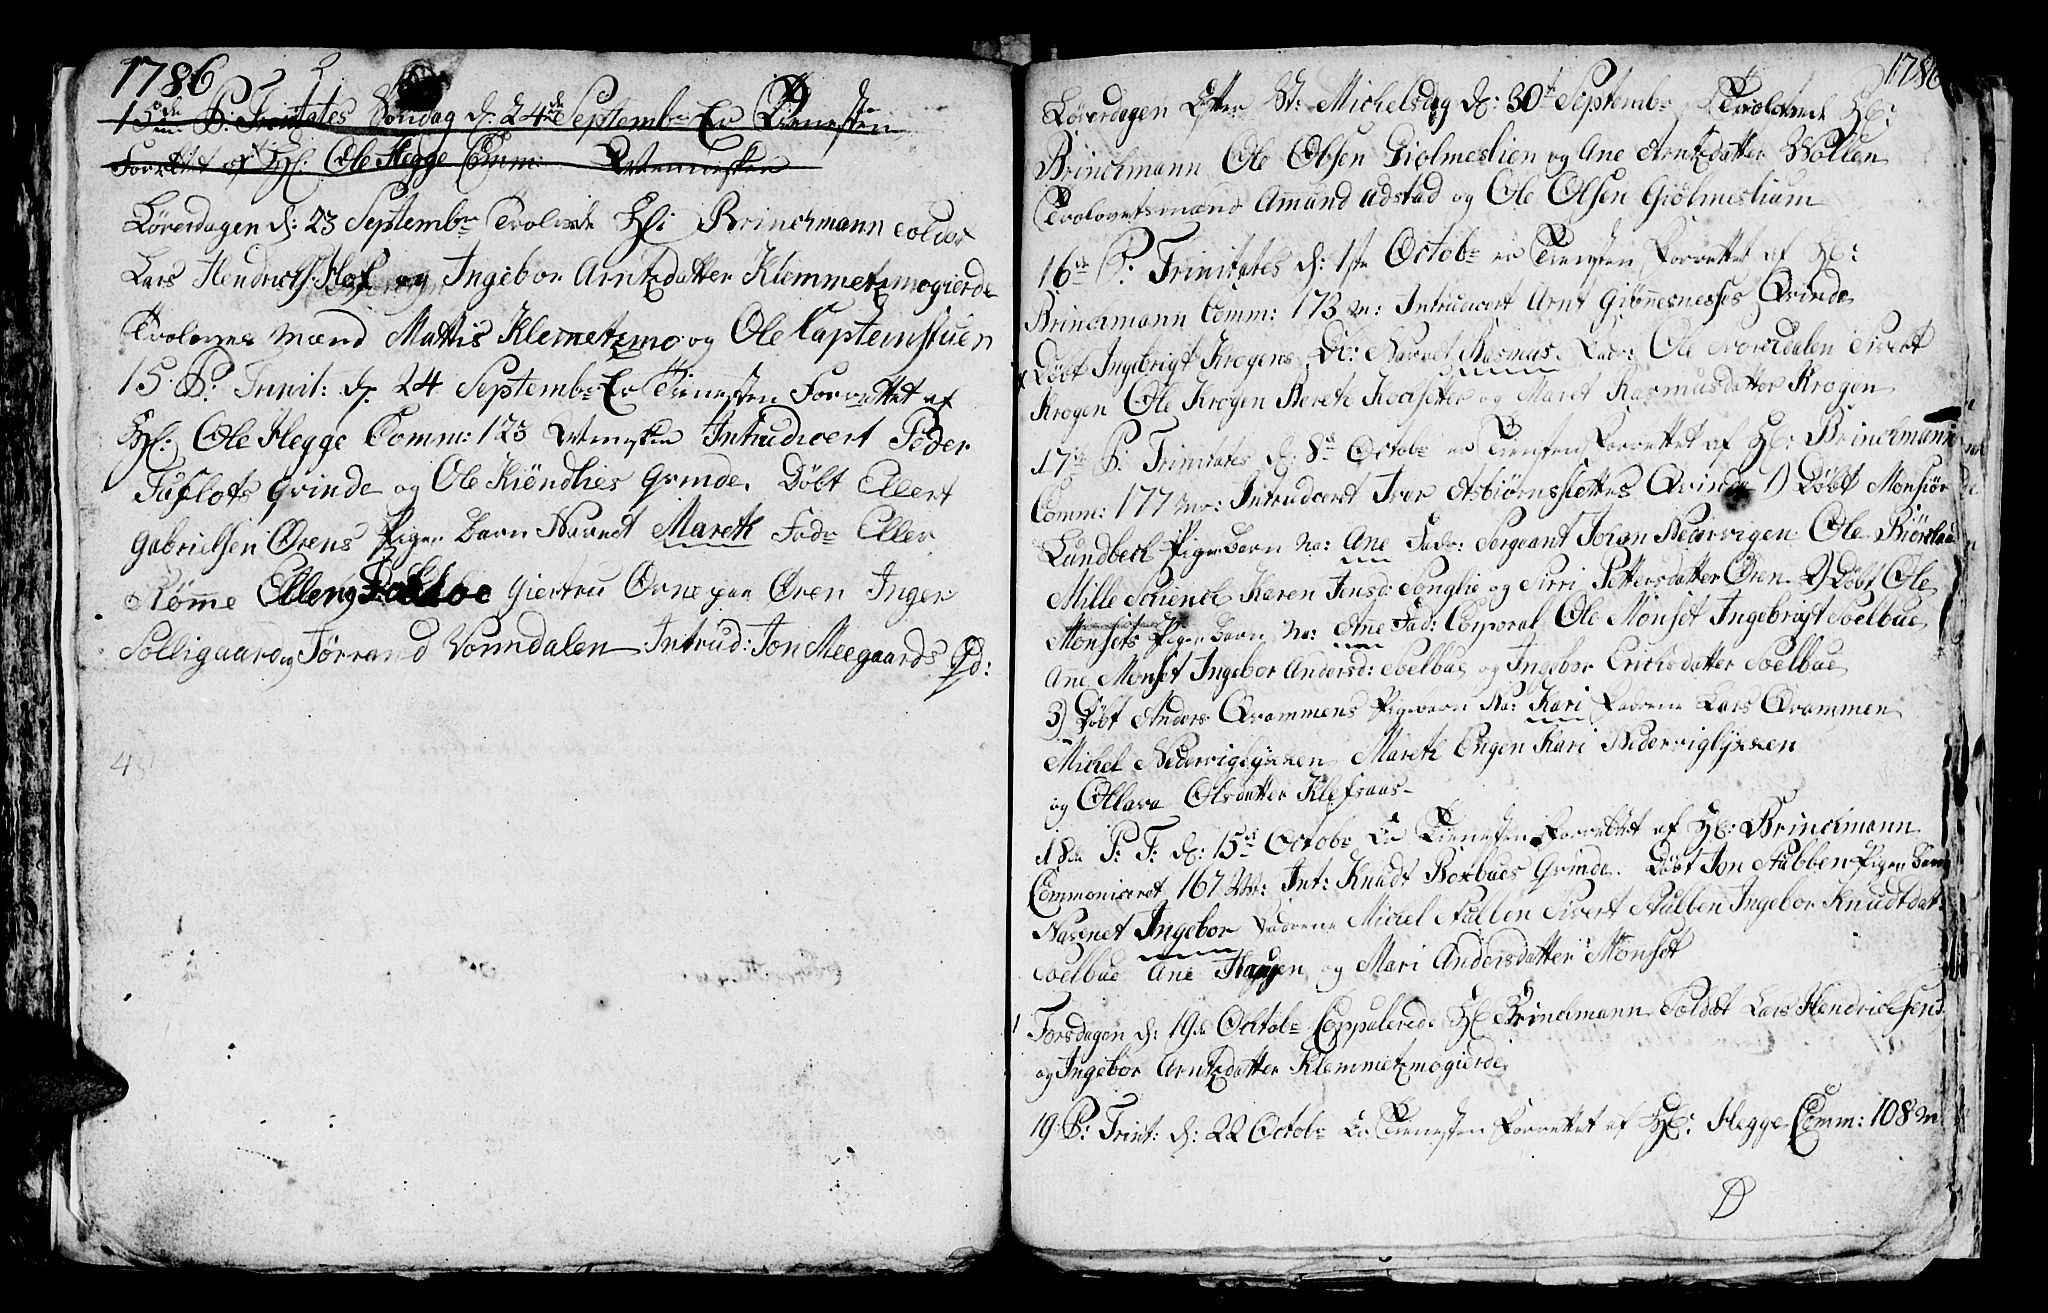 1786
15de P: Trinitates Søndag d: 24de Septembr Er Tienesten
Forrettet af Hr: Ole Hegge Comm: Mennisker
Løverdagen d: 23 Septembr Trolovede Hr Brinchmann Soldat
Lars Hendrichs: Hof og Ingebor Arntzdatter Klemmetzmogierde
Trolovnes mænd Mattis Klemetzmo og Ole Capteinstuen
15. P: Trinit: d. 24 Septembr Er Tienesten Forrættet af
Hr: Ole Hegge Comm: 123 Mennisker Intrudcert Peder
Fuglots Qvinde og Ole Kiöndlies Qvinde. Døbt Ellert
Gabrielsen Ørens Pigen barn Navnet Mareth Fadr Eller
Römme Giertru Orne paa Øren Inger
Solligaard og Törrand Vonndalen Intrud: Jon Meegaards Qd:
1786
Løverdagen Efter St: Michelsdag d: 30te Septembr Trolovede Hr:
Brinchmann Ole Olsen Giolmeslien og Ane Arntzdatter Wollen
Trolovetsmænd Amund Udstad og Ole Olsen Giölmesliam
16de P: Trinitates d: 1ste Octobr er Tienesten Forrettet af Hr:
Brinchmann Comm: 173 M: Intrudcert Arnt Giönnesnesses Qvinde
Døbt Ingebrigt Krogens Db: Navnet Rasmus. Fadr: Ole Svorkdalen Sivert
Krogen Ole Krogen Bereth Hochsetter og Maret Rasmusdatter Krogen
17de P: Trinitates d: 8de Octobr er Tienesten Forrettet af Hr: Brinchmann
Comm: 177 Mr: Intrudcert Iver Asbiörnsslettes Qvinde 1) Døbt Monsiör
Lundbech Pigen barn Na: Ane Fadr: Sergeant Johan Nedervigen Ole Biörklanden
Mille Schench Karen Jensd: Songlie og Sirri Pettersdatter Øren 2) Døbt Ole
Monsets Pigen barn Na: Ane Fad: Corporal Ole Monset Ingebrigt Soelbue
Ane Monset Ingebor Andersd: Soelbue og Ingebor Erichsdatter Soelbue
3) Døbt Anders Qvammens Pigebarn Na: Kari Fadrene Lars Qvammen
Michel Nedervigløkken Mareth Engen Kari Nedervigløkken
og Ollava Olsdatter Klefsaas
18de P: T: d: 15de Octobr Er Tienesten Forrettet af Hr: Brinchmann
Commoniceret 167 Mr: Int: Knudt Boxbues Qvinde. Døbt Jon Stubben Pigen barn
Nafnet Ingebor Fadrene Michel Stubben Sivert Stubben Ingebor Knudtdat:
Soelbue Ane Haugen og Mari Andersdatter Monset
Torsdagen d: 19de Octobr Coppulerede Hr Brinchmann Soldat Lars Hendrichsens
og Ingebor Arntzdatter Klemmetzmogierde
19. P: Trint: d: 22 Octobr Er Tienesten Forrettet af Hr: Hegge Comm: 108 M